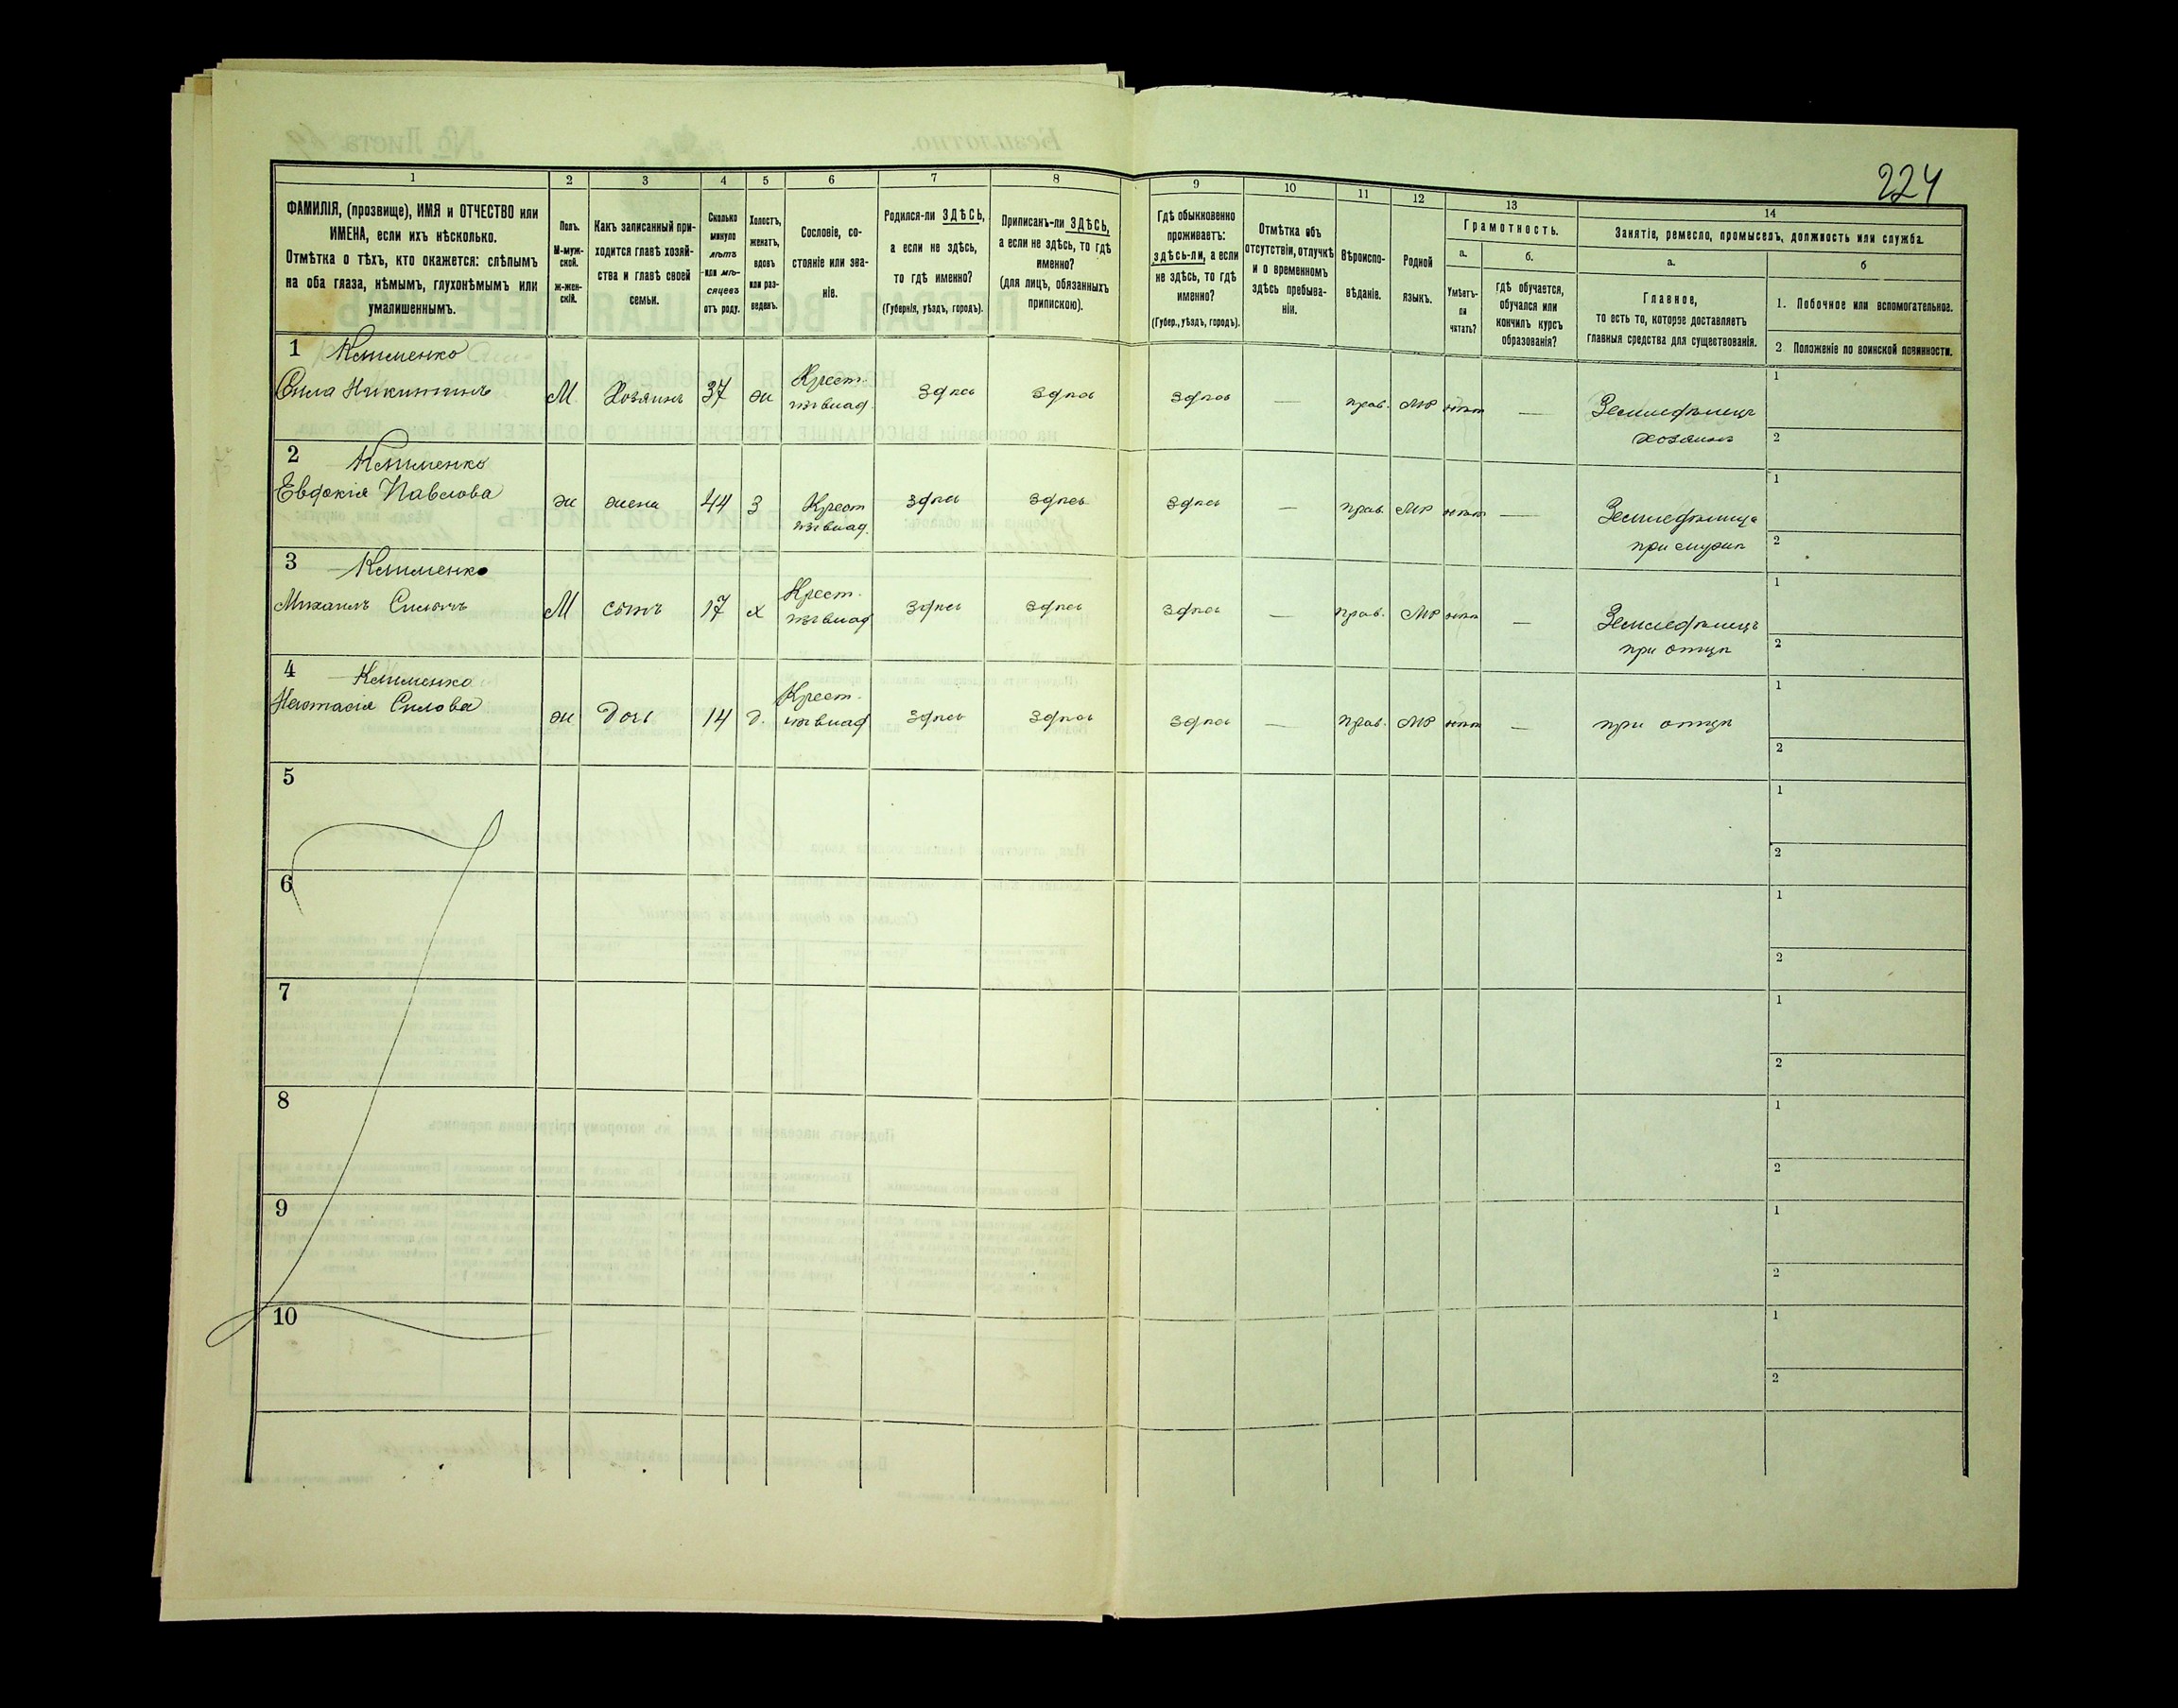 224
1
2
3
4
5
6
7
8
9
10
11
12
13
14
ФАМИЛІЯ, (прозвище), ИМЯ и ОТЧЕСТВО или
ИМЕНА, если ихъ нѣсколько.
Отмѣтка о тѣхъ, кто окажется: слѣпымъ
на оба глаза, нѣмымъ, глухонѣмымъ или
умалишеннымъ.
Полъ.
М-муж-
ской.
ж-жен-
скій.
Какъ записанный при-
ходится главѣ хозяй-
ства и главѣ своей
семьи.
Сколько
минуло
лѣтъ
или мѣ-
сяцевъ
отъ роду.
Холостъ,
женатъ,
вдовъ
или раз-
веденъ.
Сословіе, со-
стояніе или зва-
ніе.
Родился-ли ЗДѢСЬ,
а если не здѣсь,
то гдѣ именно?
(Губернія, уѣздъ, городъ).
Приписанъ-ли ЗДѢСЬ,
а если не здѣсь, то гдѣ
именно?
(для лицъ, обязанныхъ
припискою).
Гдѣ обыкновенно
проживаетъ:
здѣсь-ли, а если
не здѣсь, то гдѣ
именно?
(Губер., уѣздъ, городъ).
Отмѣтка объ
отсутствіи, отлучкѣ
и о временномъ
здѣсь пребыва-
ніи.
Вѣроиспо-
вѣданіе.
Родной
языкъ.
Грамотность.
а.
Умѣетъ-
ли
читать?
б.
гдѣ обучается,
обучался или
кончилъ курсъ
образованія?
Занятіе, ремесло, промыселъ, должность или служба.
а.
Главное,
то есть то, которое доставляетъ
главныя средства для существованія.
б
1. Побочное или вспомогательное.
2 Положеніе по воинской повинности.
1 Клименко
Сила Никитинъ М Хозяинъ 37 ж Крест. изъ влад. здѣсь здѣсь здѣсь — прав. МР нѣтъ — Земледѣлецъ
хозяинъ
1
2
2 Клименко
Евдокія Павлова ж жена 44 з Крест изъ влад. здѣсь здѣсь здѣсь — прав. МР нѣтъ — Земледѣлица
при мужѣ
1
2
3 Клименко
Михаилъ Силичъ М сынъ 17 х Крест. изъ влад здѣсь здѣсь здѣсь — прав. МР нѣтъ — Земледѣлецъ
при отцѣ
1
2
4 Клименко
Настасія Силова ж дочь 14 д. Крест. изъ влад здѣсь здѣсь здѣсь — прав. МР нѣтъ — при отцѣ
1
2
5
1
2
6
1
2
7
1
2
8
1
2
9
1
2
10
1
2